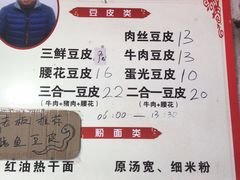 豆皮类
肉丝豆皮 13
三鲜豆皮 牛肉豆皮 13
腰花豆皮 16 蛋光豆皮 10
三合一豆皮 22 二合一豆皮 20
(牛肉+猪肉+腰花) (牛肉+腰花)
06:00—13:30
老板推荐
鱼豆皮
粉面类
红油热干面 原汤宽、细米粉